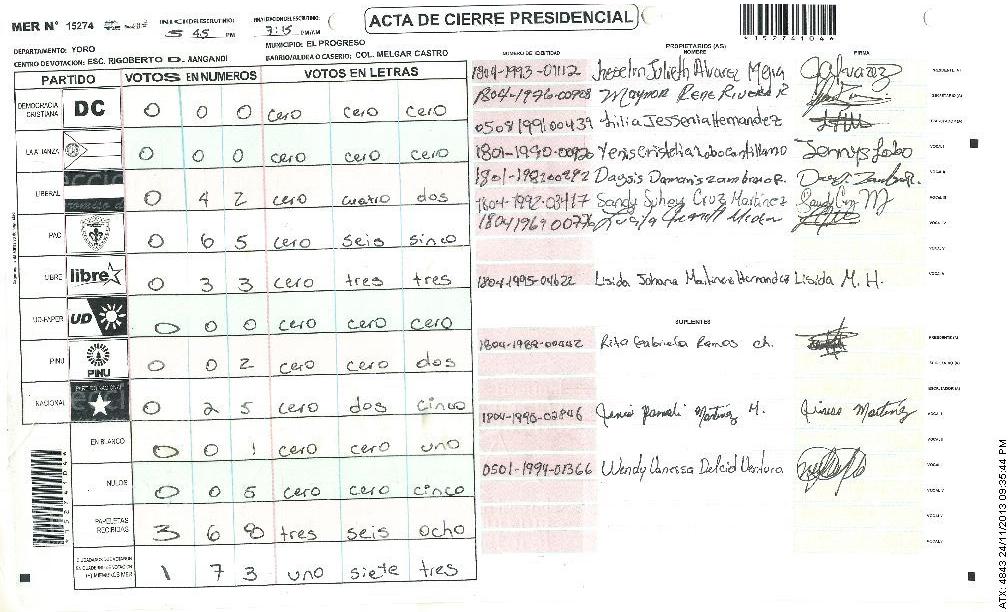 MER N° 15274
INICIO DEL ESCRUTINIO: 5 45 PM
FINALIZACION DEL ESCRUTINIO: 7:15 PM/AM
ACTA DE CIERRE PRESIDENCIAL
*1527410 4*
DEPARTAMENTO: YORO
MUNICIPIO: EL PROGRESO
CENTRO DE VOTACION: ESC. RIGOBERTO D. AANGANDI
BARRIO/ALDEA O CASERIO: COL. MELGAR CASTRO
PARTIDO VOTOS EN NUMEROS VOTOS EN LETRAS
DEMOCRACIA CRISTIANA DC 0 0 0 cero cero cero
LA ALIANZA 0 0 0 cero cero cero
LIBERAL 0 4 2 cero cuatro dos
PAC 0 6 5 cero seis sinco
LIBRE libre 0 3 3 cero tres tres
UD-FAPER UD 0 0 0 cero cero cero
PINU PINU 0 0 2 cero cero dos
NACIONAL 0 2 5 cero dos cinco
EN BLANCO 0 0 1 cero cero uno
NULOS 0 0 5 cero cero cinco
PAPELETAS RECIBIDAS 3 6 8 tres seis ocho
(+) MIEMBROS MER 1 7 3 uno siete tres
PROPIETARIOS (AS)
NUMERO DE IDENTIDAD NOMBRE FIRMA
1804-1993-01112 Julieth Alvarez Mejia PRESIDENTE (A)
1804-1976-00908 Maynor Rene Rivera R SECRETARIO (A)
0508199100439 Lilia Jessenia Hernandez
1801-1990-0092 Yenis Cristelia Lobo Cantillano VOCAL I
1801-198200292 Dagsis Damaris Zambrano R. VOCAL II
1804-1992-03417 Sandy Suhey Cruz Martinez VOCAL III
1804196900779 VOCAL IV
VOCAL V
1804-1995-04622 Lisida Johana Martinez Hernandez Lisida M. H.
SUPLENTES
1804-1989-00442 Rita Gabriela Ramos ch. PRESIDENTE (A)
SECRETARIO (A)
ESCRUTADOR (A)
1804-1990-02846 Martinez M. Martinez VOCAL I
VOCAL II
0501-1994-01366 Wendy Vanessa Delcid Ventura
VOCAL IV
VOCAL V
ATX: 4843 24/11/2013 09:35:44 PM